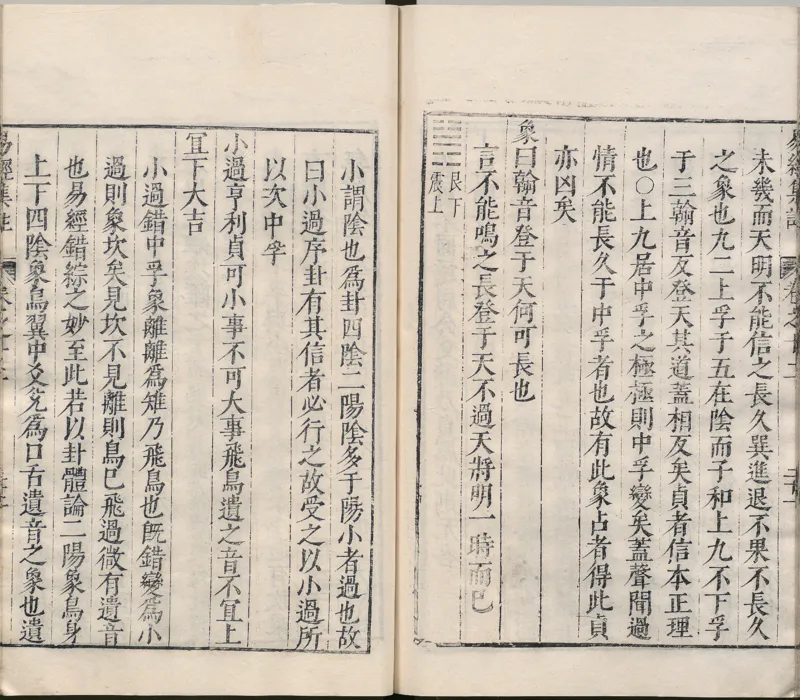 未幾而天明不能信之長久巽進退不果不長久
之象也九二上孚于五在陰而子和上九不下孚
于三翰音反登天其道蓋相反矣貞者信本正理
也○上九居中孚之極極則中孚變矣蓋聲聞過
情不能長久于中孚者也故有此象占者得此貞
亦凶矣
象曰翰音登于天何可長也
言不能鳴之長登于天不過天將明一時而已
艮下
震上
小謂陰也爲卦四陰二陽陰多于陽小者過也故
曰小過序卦有其信者必行之故受之以小過所
以次中孚
小過亨利貞可小事不可大事飛鳥遺之音不宜上
宜下大吉
小過錯中孚象離離爲雉乃飛鳥也既錯變爲小
過則象坎矣見坎不見離則鳥已飛過微有遺音
也易經錯綜之妙至此若以卦體論二陽象鳥身
上下四陰象鳥翼中爻兌爲口舌遺音之象也遺
易經集註